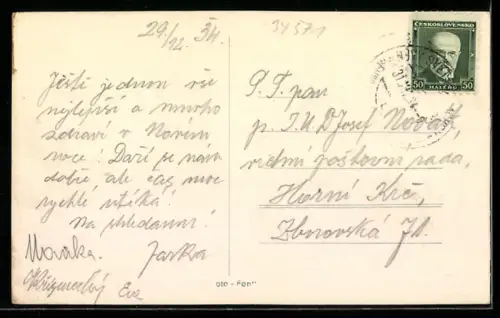 29./12. 34.
34571
Ještě jednou vše
nejlepší a mnoho
zdraví v Novém
roce! Daří se nám
dobře, ale čas moc
rychle utíká!
Na shledanou!
Jarka
Eva
ČESKOSLOVENSKO
50 HALÉŘŮ 50
P. T. pan
p. J.U.D Josef Novák,
vrchní poštovní rada,
Horní Krč,
Zborovská